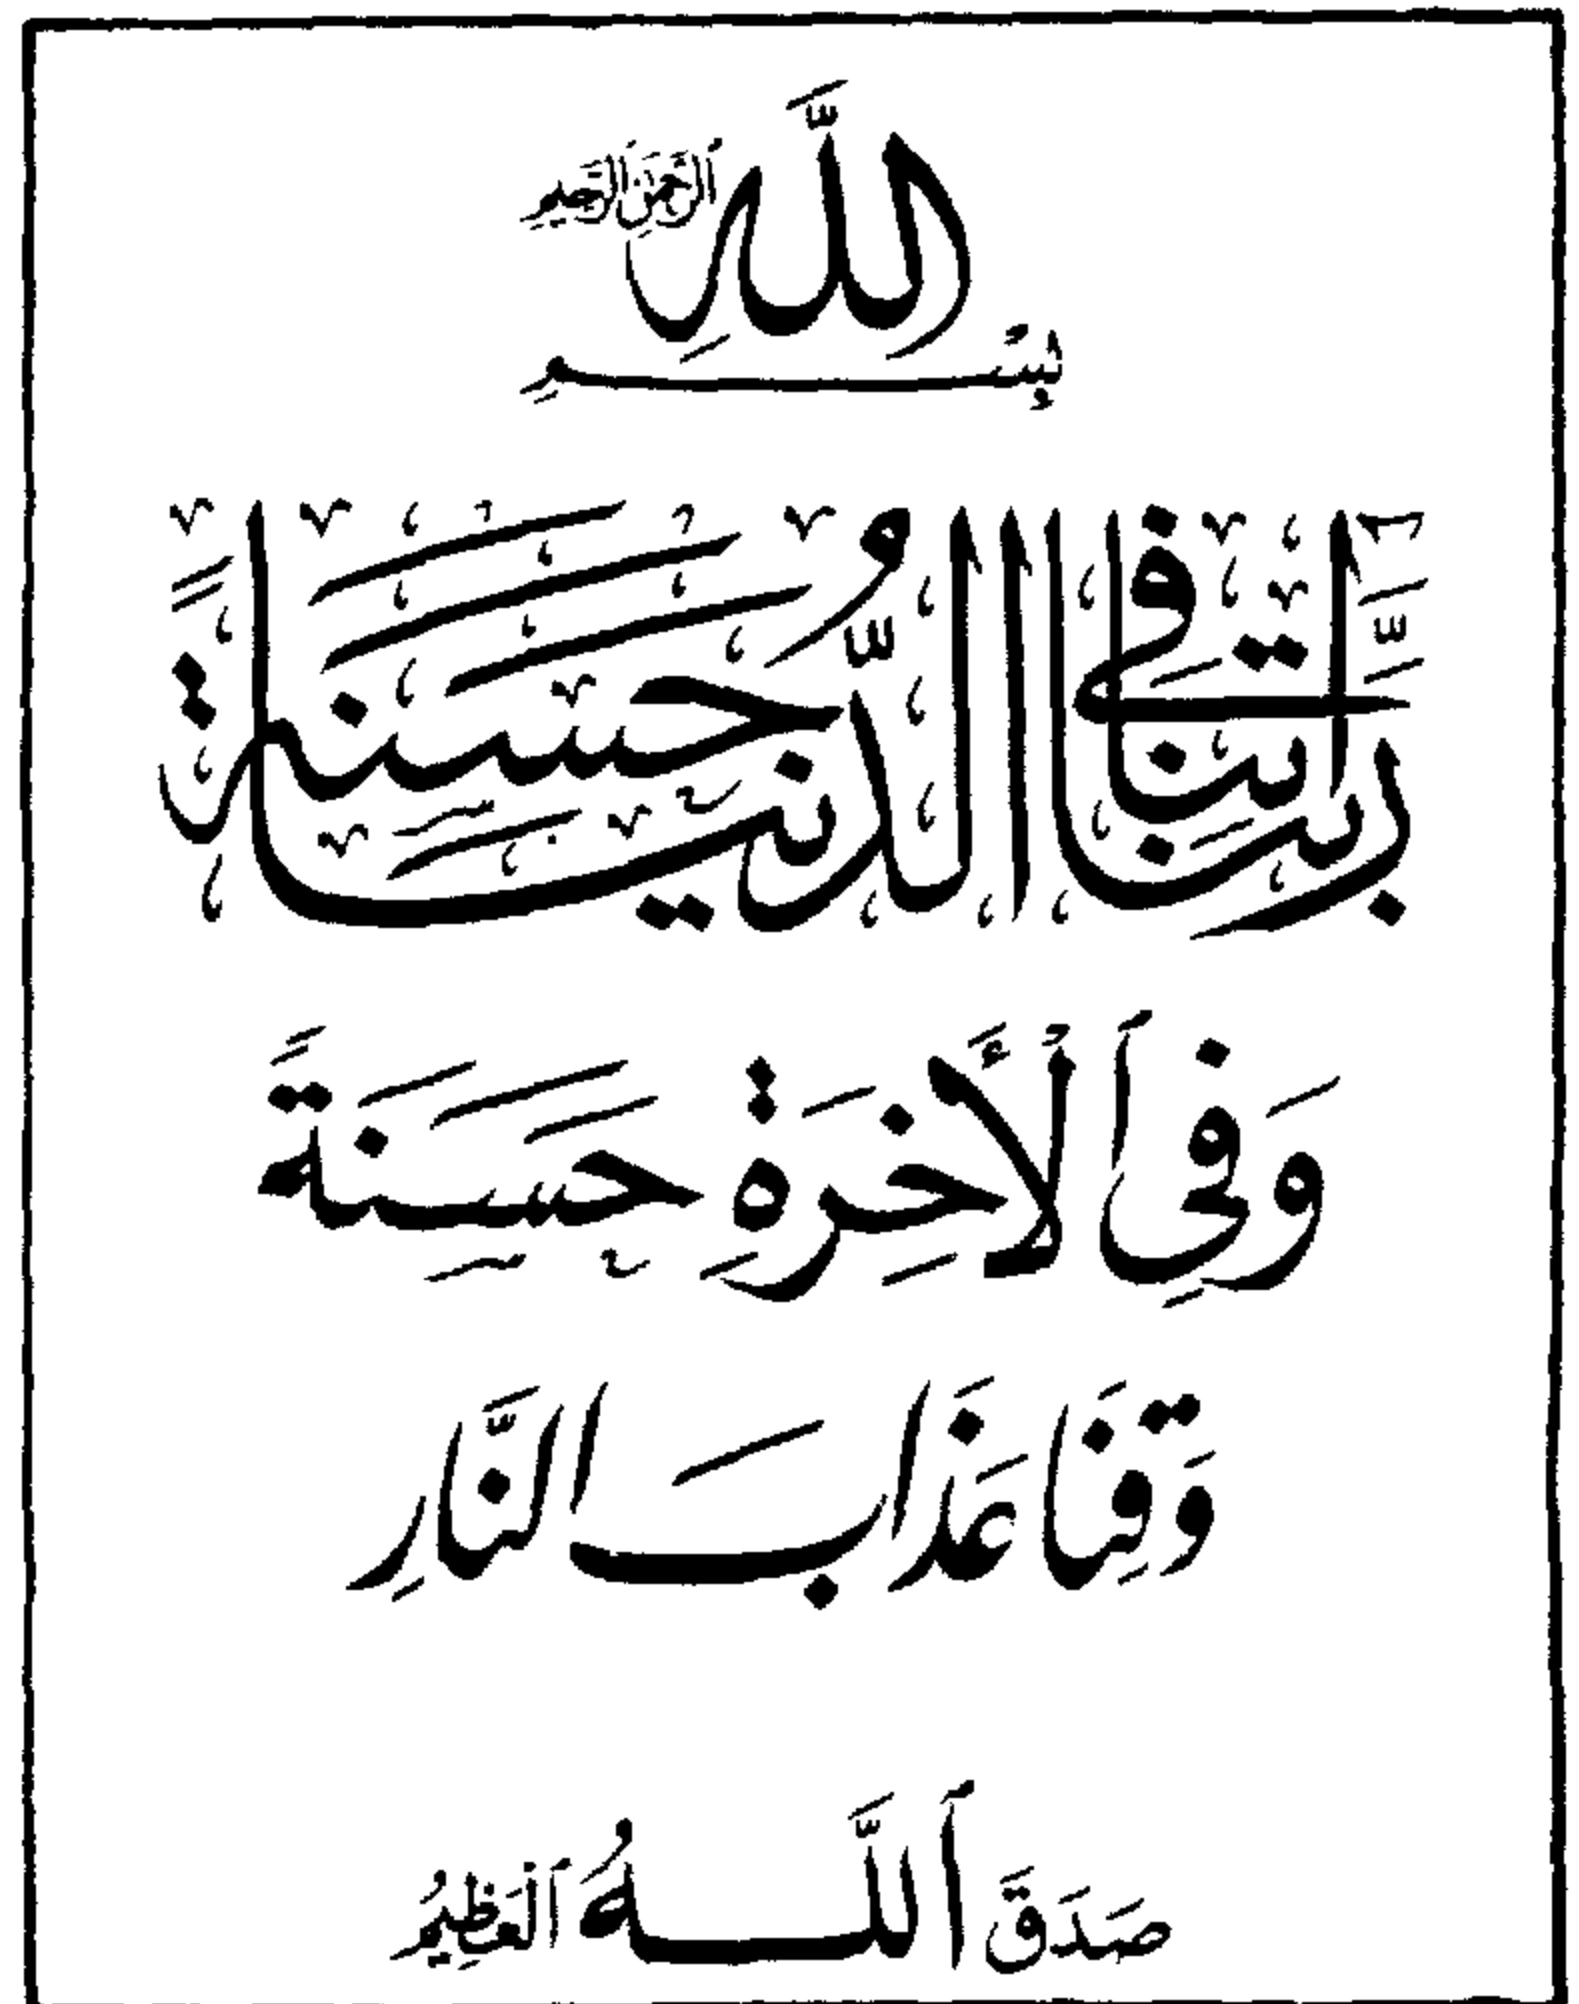 بِسْمِ اللَّهِ الرَّحْمَٰنِ الرَّحِيمِ
رَبَّنَا آتِنَا فِي الدُّنْيَا حَسَنَةً
وَفِي الْآخِرَةِ حَسَنَةً
وَقِنَا عَذَابَ النَّارِ
صَدَقَ اللَّهُ الْعَظِيمُ